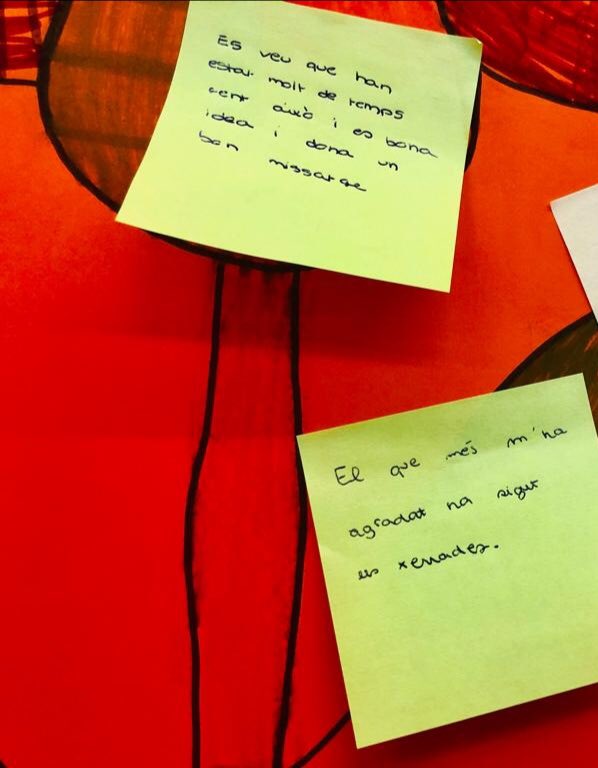 Es veu que han
estat molt de temps
fent això i es bona
idea i dona un
bon missatge
El que més m'ha
agradat ha sigut
les xerrades.